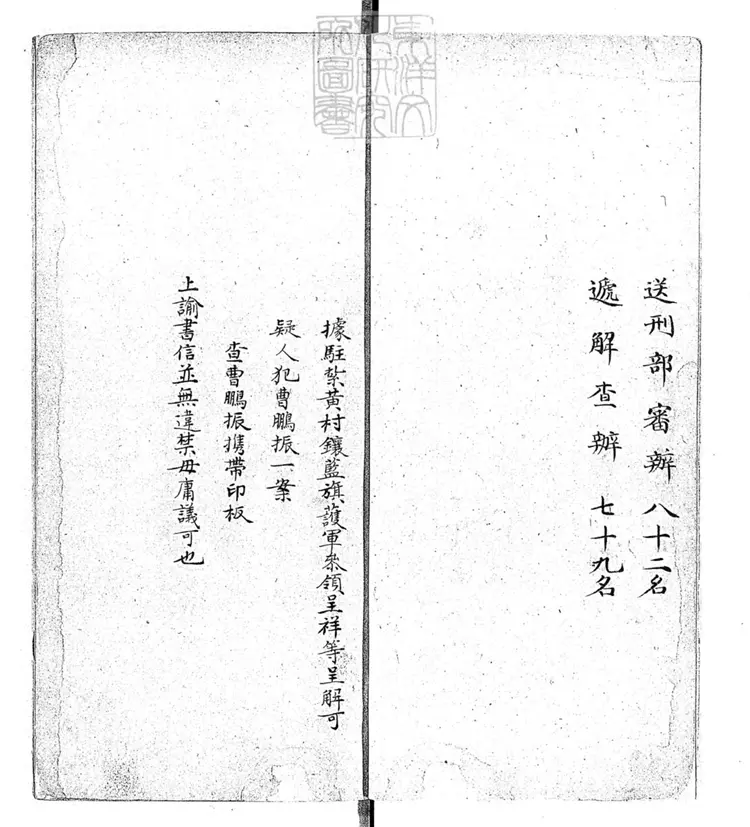 送刑部審辦 八十二名
遞解查辦 七十九名
據駐紮黃村鑲藍旗護軍叅領呈祥等呈解可
疑人犯曹鵬振一案
查曹鵬振携帶印板
上諭書信並無違禁毋庸議可也
東洋文
化研究
所圖書